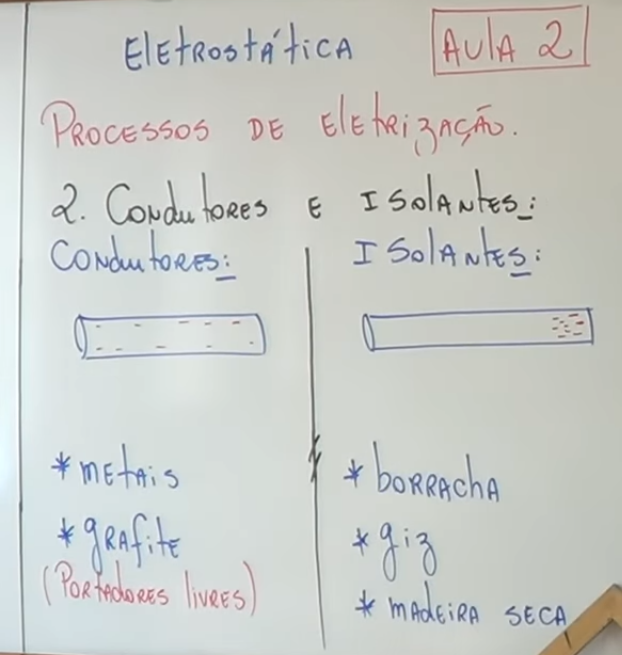 Eletrostática
Aula 2
Processos de Eletrização.
2. Condutores e Isolantes:
Condutores:
* metais
* grafite
(Portadores livres)
Isolantes:
* borracha
* giz
* madeira seca